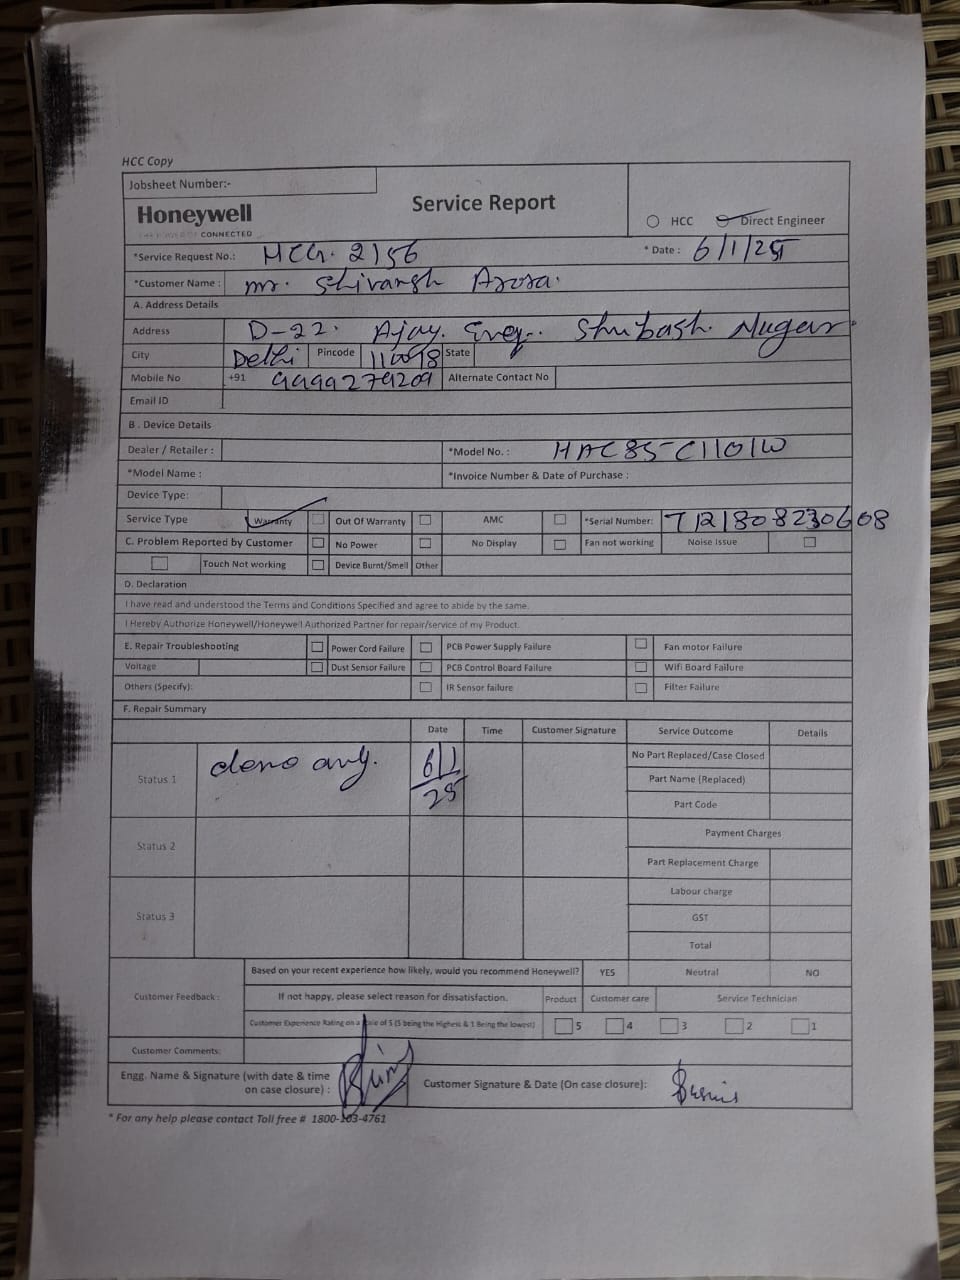 HCC Copy
Jobsheet Number:-
Honeywell
CONNECTED
Service Report
HCC Direct Engineer
*Service Request No.: HCG. 2156 * Date : 6/1/25
*Customer Name : mr. Shivansh Arora.
A. Address Details
Address D-22. Ajay. Shubash. Nugar.
City Delhi Pincode 110098 State
Mobile No +91 9999279209 Alternate Contact No
Email ID
B . Device Details
Dealer / Retailer : *Model No. : HAC85-C1101W
*Model Name : *Invoice Number & Date of Purchase :
Device Type:
Service Type Warranty Out Of Warranty AMC *Serial Number: 7121808230608
C. Problem Reported by Customer No Power No Display Fan not working Noise Issue
Touch Not working Device Burnt/Smell Other
D. Declaration
I have read and understood the Terms and Conditions Specified and agree to abide by the same.
I Hereby Authorize Honeywell/Honeywell Authorized Partner for repair/service of my Product.
E. Repair Troubleshooting Power Cord Failure PCB Power Supply Failure Fan motor Failure
Voltage Dust Sensor Failure PCB Control Board Failure Wifi Board Failure
Others (Specify): IR Sensor failure Filter Failure
F. Repair Summary
Date Time Customer Signature Service Outcome Details
Status 1 6/1/25 No Part Replaced/Case Closed
Part Name (Replaced)
Part Code
Status 2 Payment Charges
Part Replacement Charge
Status 3 Labour charge
GST
Total
Customer Feedback : Based on your recent experience how likely, would you recommend Honeywell? YES Neutral NO
If not happy, please select reason for dissatisfaction. Product Customer care Service Technician
Customer Experience Rating on a of 5 (5 being the Highest & 1 Being the lowest) 5 4 3 2 1
Customer Comments:
Engg. Name & Signature (with date & time on case closure) : Customer Signature & Date (On case closure):
* For any help please contact Toll free # 1800-103-4761